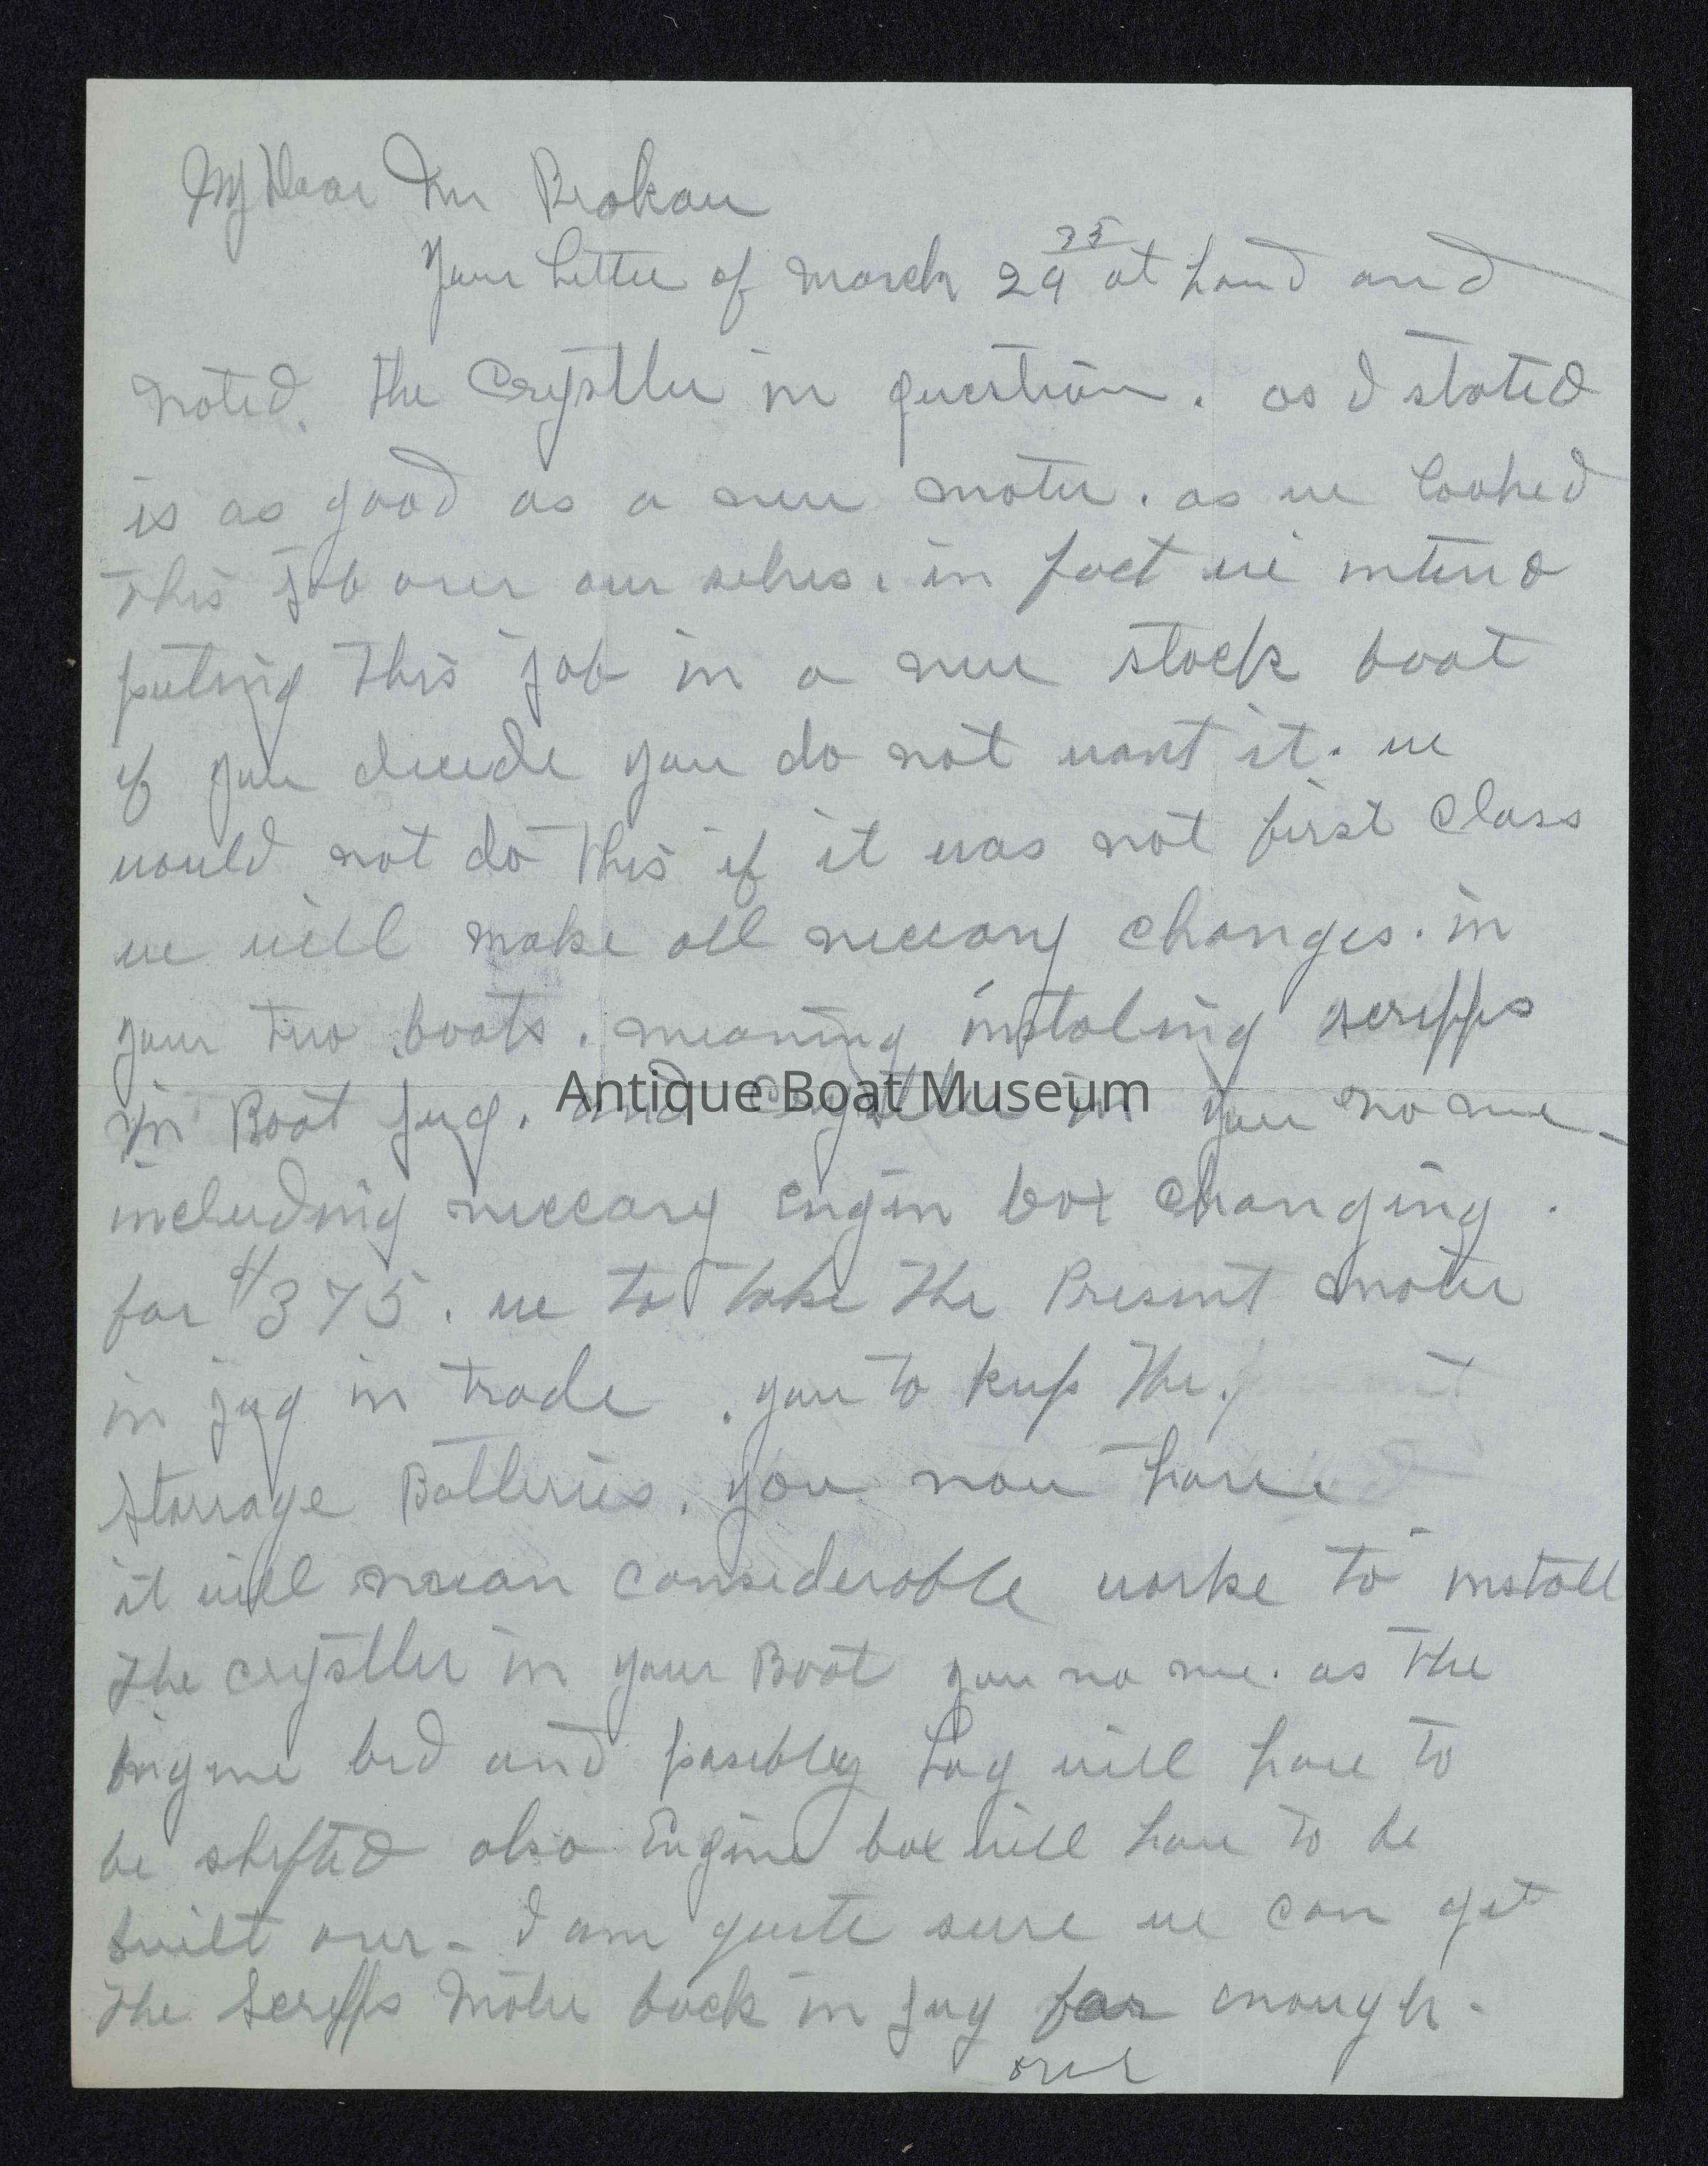 My Dear Mr Brokaw
25
Your letter of March 29 at hand and
noted. the Crystller in question. as I stated
is as good as a new moter. as we looked
this Job over our selves. in fact we intend
puting this job in a new stock boat
if you decide you do not want it. we
would not do this if it was not first Class
we will make all neccary changes. in
your two boats. meaning instaling scripps
in Boat Jug. and Crystller in you no me -
Antique Boat Museum
including neccary Engin box changing.
for $375. we to take the Present moter
in jug in trade. you to keep the
Storrage Batteries. you now have
it will mean considerable worke to install
the crystller in your Boat you no me. as the
engine bed and posibley Log will have to
be shifted also Engine box will have to be
built over - I am quite sure we can get
the Scripps Moter back in Jug far enough -
over